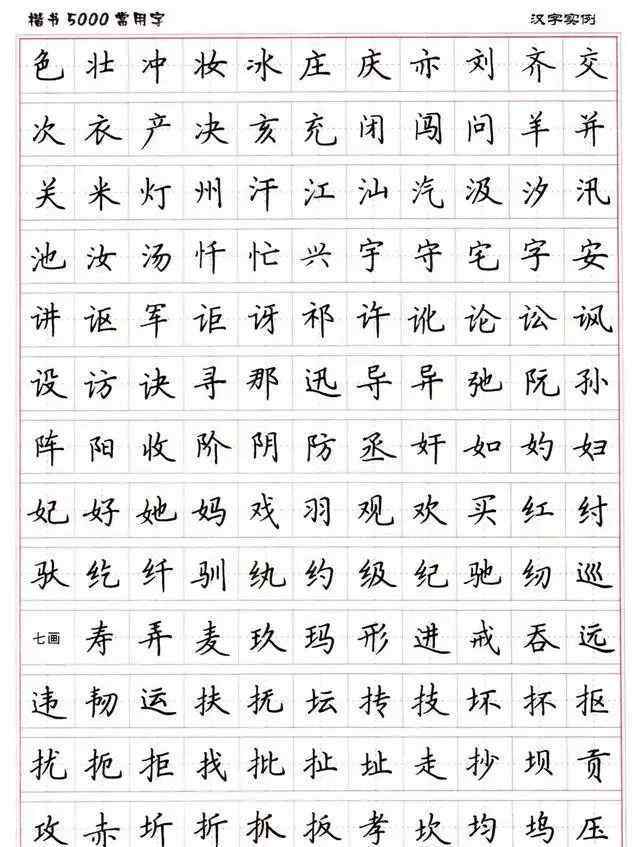 楷书5000常用字 汉字实例
色壮冲妆冰庄庆亦刘齐交
次衣产决亥充闭闯问羊并
关米灯州汗江汕汽汲汐汛
池汝汤忏忙兴宇守宅字安
讲讴军讵讶祁许讹论讼讽
设访诀寻那迅导异弛阮孙
阵阳收阶阴防丞奸如妁妇
妃好她妈戏羽观欢买红纣
驮纥纤驯纨约级纪驰纫巡
七画寿弄麦玖玛形进戒吞远
违韧运扶抚坛抟技坏抔抠
扰扼拒找批扯址走抄坝贡
攻赤圻折抓扳孝坎均坞压